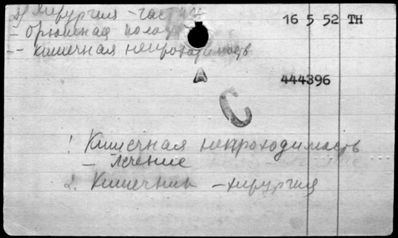 2) Хирургия - част
- брюшная полость
-- кишечная непроходимость
16 5 52 TH
444396
! Кишечная непроходимость
- лечение
2. Кишечник - хирургия